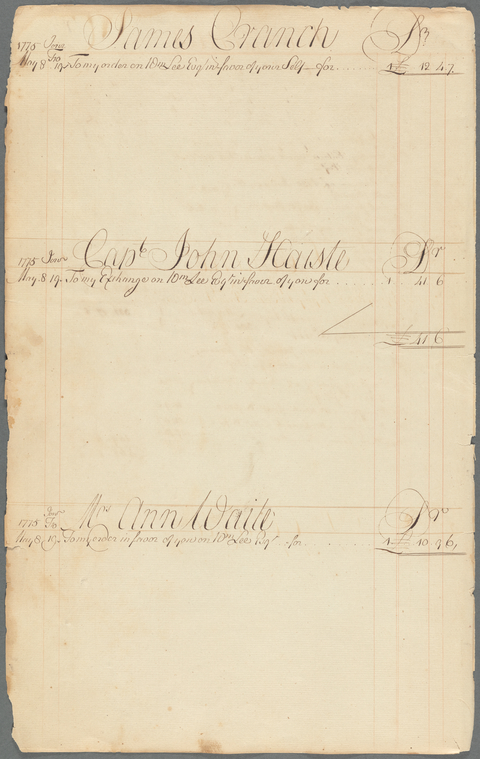 James Cranch Dr
1775 Jour Fro
May 8 19 To my order on Wm Lee Esqr in favor of your Self for 1 £ 12 4 7
Capt John Haiste Dr
1775 Jour
May 8 19 To my Exchange on Wm Lee Esqr in favor of you for 1 41 6
£ 41 6
Mrs Ann Waite Dr
1775 Jour Fo
May 8 19 To my order in favor of you on Wm Lee Esqr for 1 £ 10 9 6